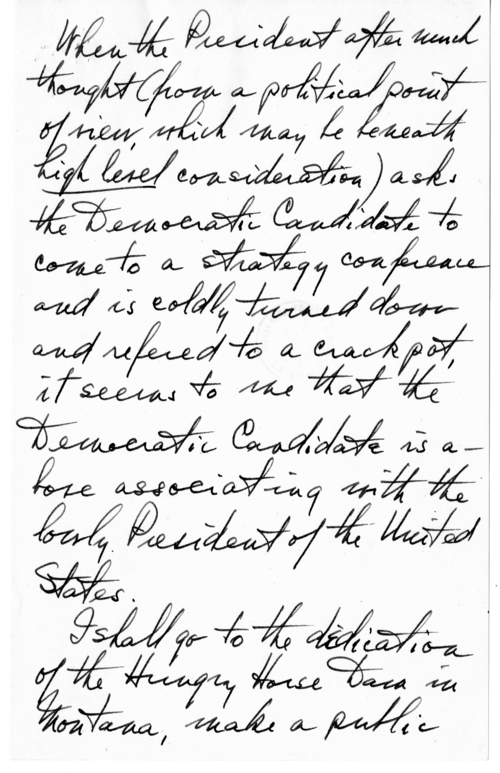 When the President after much
thought (from a political point
of view, which may be beneath
high level consideration) asks
the Democratic Candidate to
come to a strategy conference
and is coldly turned down
and refered to a crackpot,
it seems to me that the
Democratic Candidate is a-
bove associating with the
lowly President of the United
States.
I shall go to the dedication
of the Hungry Horse Dam in
Montana, make a public